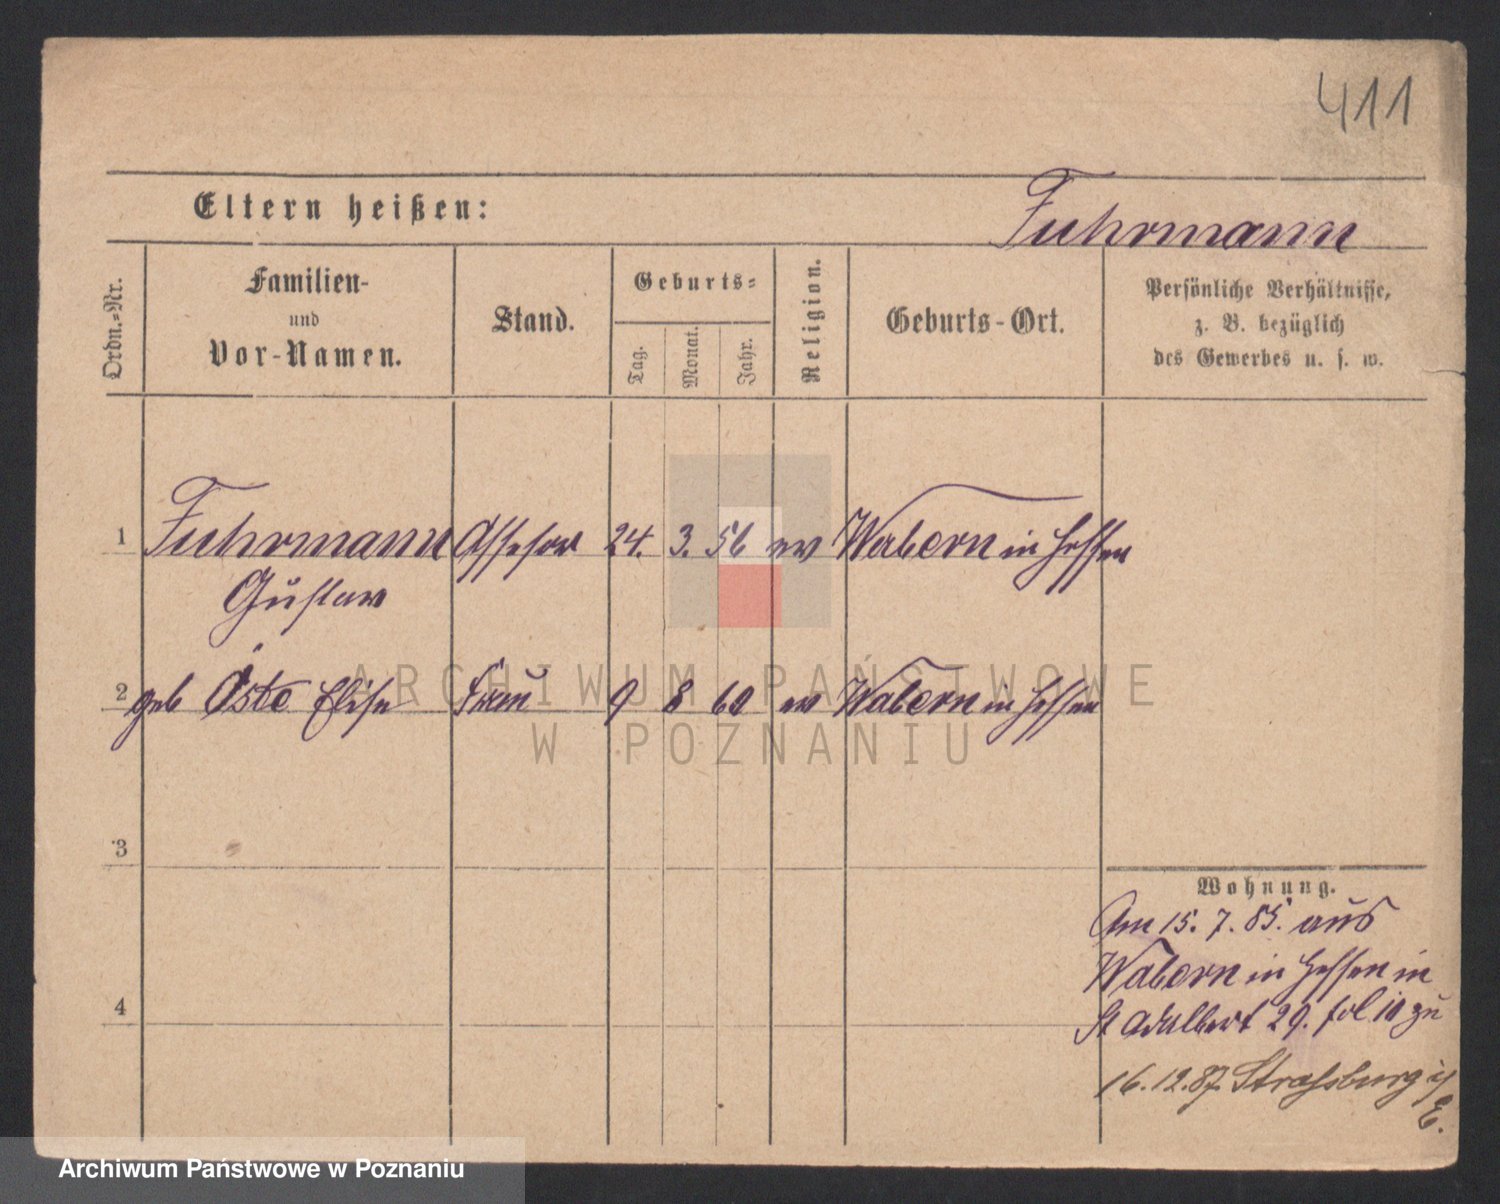 411
Eltern heißen:
Fuhrmann
Ordn.=Nr.
Familien-
und
Vor-Namen.
Stand.
Geburts=
Tag.
Monat.
Jahr.
Religion.
Geburts-Ort.
Persönliche Verhältnisse,
z. B. bezüglich
des Gewerbes u. s. w.
1 Fuhrmann Assessor 24. 3. 56 ev Wabern in Hessen
Gustav
2 geb Öste Elise Frau 9 8 60 ev Wabern in Hessen
3
4
Wohnung.
Am 15. 7. 85. aus
Wabern in Hessen in
St Adalbert 29. fol 10 zu
16.12.87. Strassburg i/
E.
ARCHIWUM PAŃSTWOWE
W POZNANIU
Archiwum Państwowe w Poznaniu